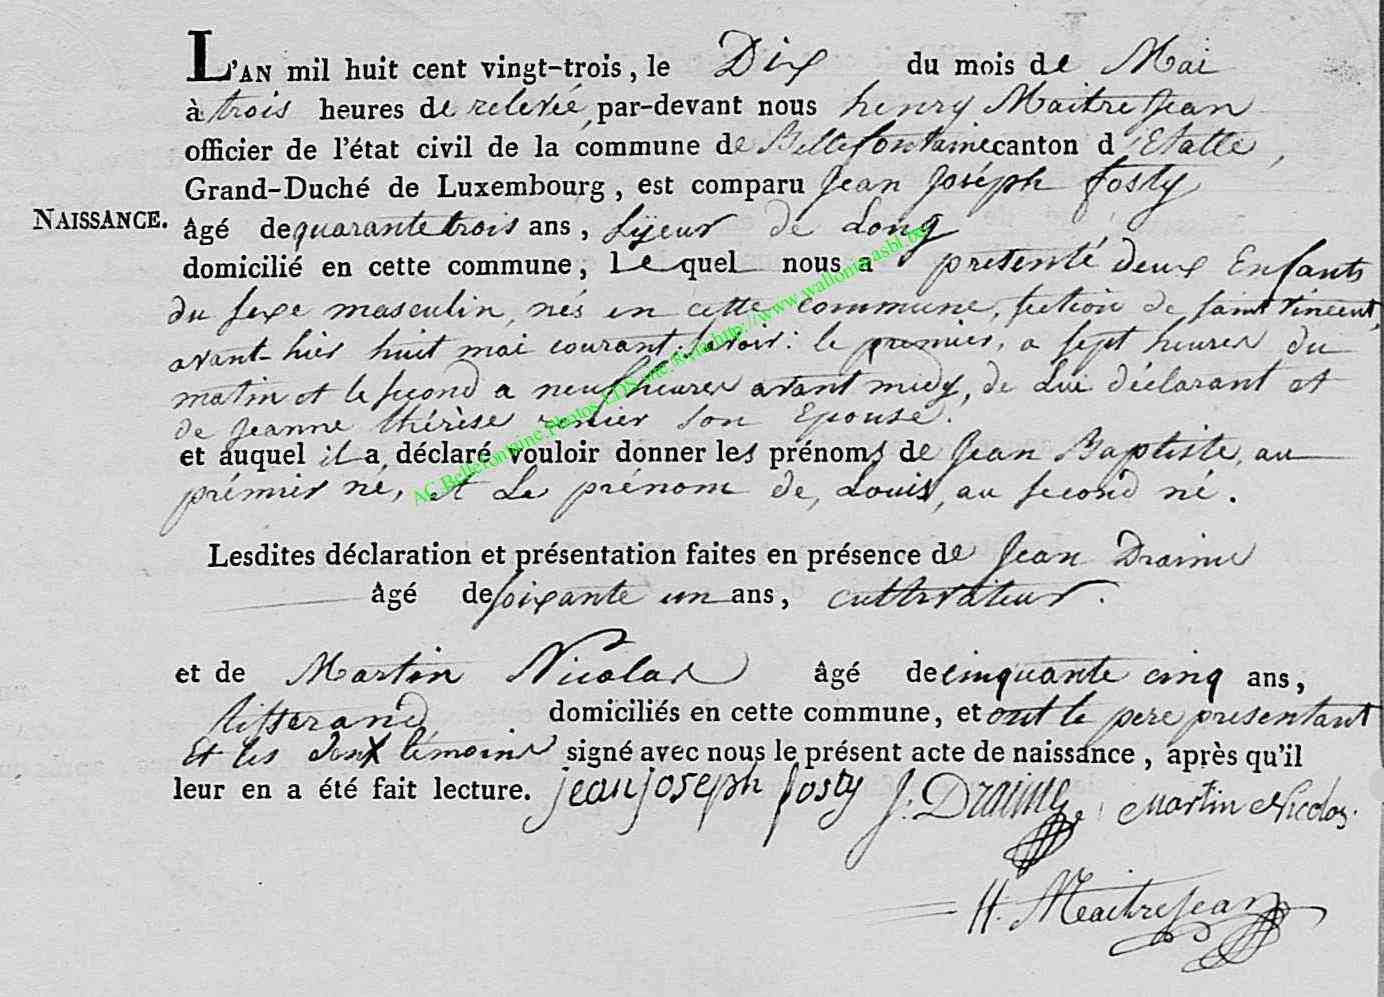 L'AN mil huit cent vingt-trois, le Dix du mois de Mai
à trois heures de relevée, par-devant nous henry Maitrejean
officier de l'état civil de la commune de Bellefontaine canton d'Etalle,
Grand-Duché de Luxembourg, est comparu Jean Joséph fosty
NAISSANCE.
âgé de quarante trois ans, Sÿeur de Long
domicilié en cette commune, Lequel nous a présenté deux Enfants
du sexe masculin, nés en cette commune, section de saint vincent,
avant-hier huit mai courant. savoir: le premier, a sept heures du
matin et le second a neuf heures avant midy, de Lui déclarant et
de jeanne thérèse son Epouse.
et auquel il a déclaré vouloir donner les prénoms de Jean Baptiste, au
prémier né, et Le prénom de, Louis, au second né.
Lesdites déclaration et présentation faites en présence de Jean Draime
âgé de soixante un ans, cultivateur.
et de Martin Nicolas âgé de cinquante cinq ans,
tisserand domiciliés en cette commune, et ont le pere presentant
et les deux témoins signé avec nous le présent acte de naissance, après qu'il
leur en a été fait lecture. jean joseph fosty J. Draime Martin Nicolas.
H. Maitrejean
AC Bellefontaine Photos http://www.wallonia-asbl.be